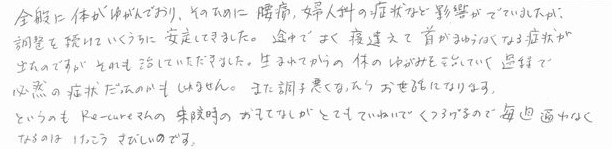 全般に体がゆがんでおり、そのために腰痛、婦人科の症状など影響がでていましたが、
調整を続けていくうちに安定してきました。途中でよく寝違えて首がまわらなくなる症状が
出たのですがそれも治していただきました。生まれてからの体のゆがみを治していく過程で
必然の症状だったのかもしれません。また調子悪くなったらお世話になります。
というのもRe-cureさんの来院時のおもてなしがとてもていねいでくつろげるので毎週通わなく
なるのはけっこうさびしいのです。